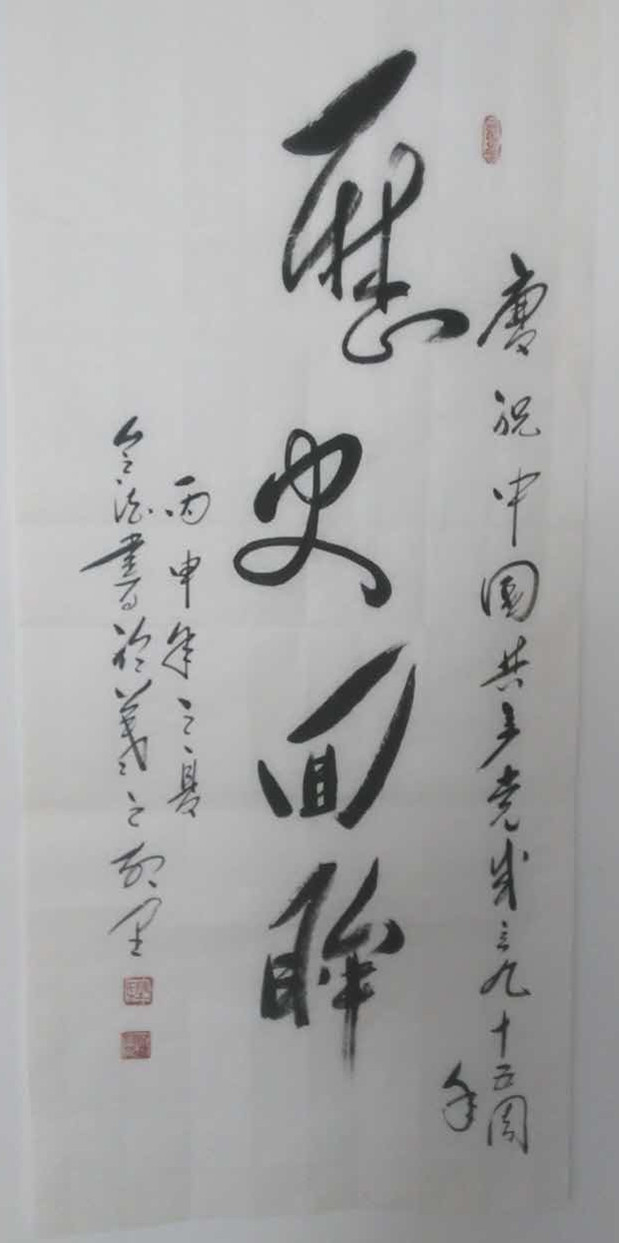 慶祝中國共產党成立九十五周
年
歷史回眸
丙申年之夏
書於羲之故里